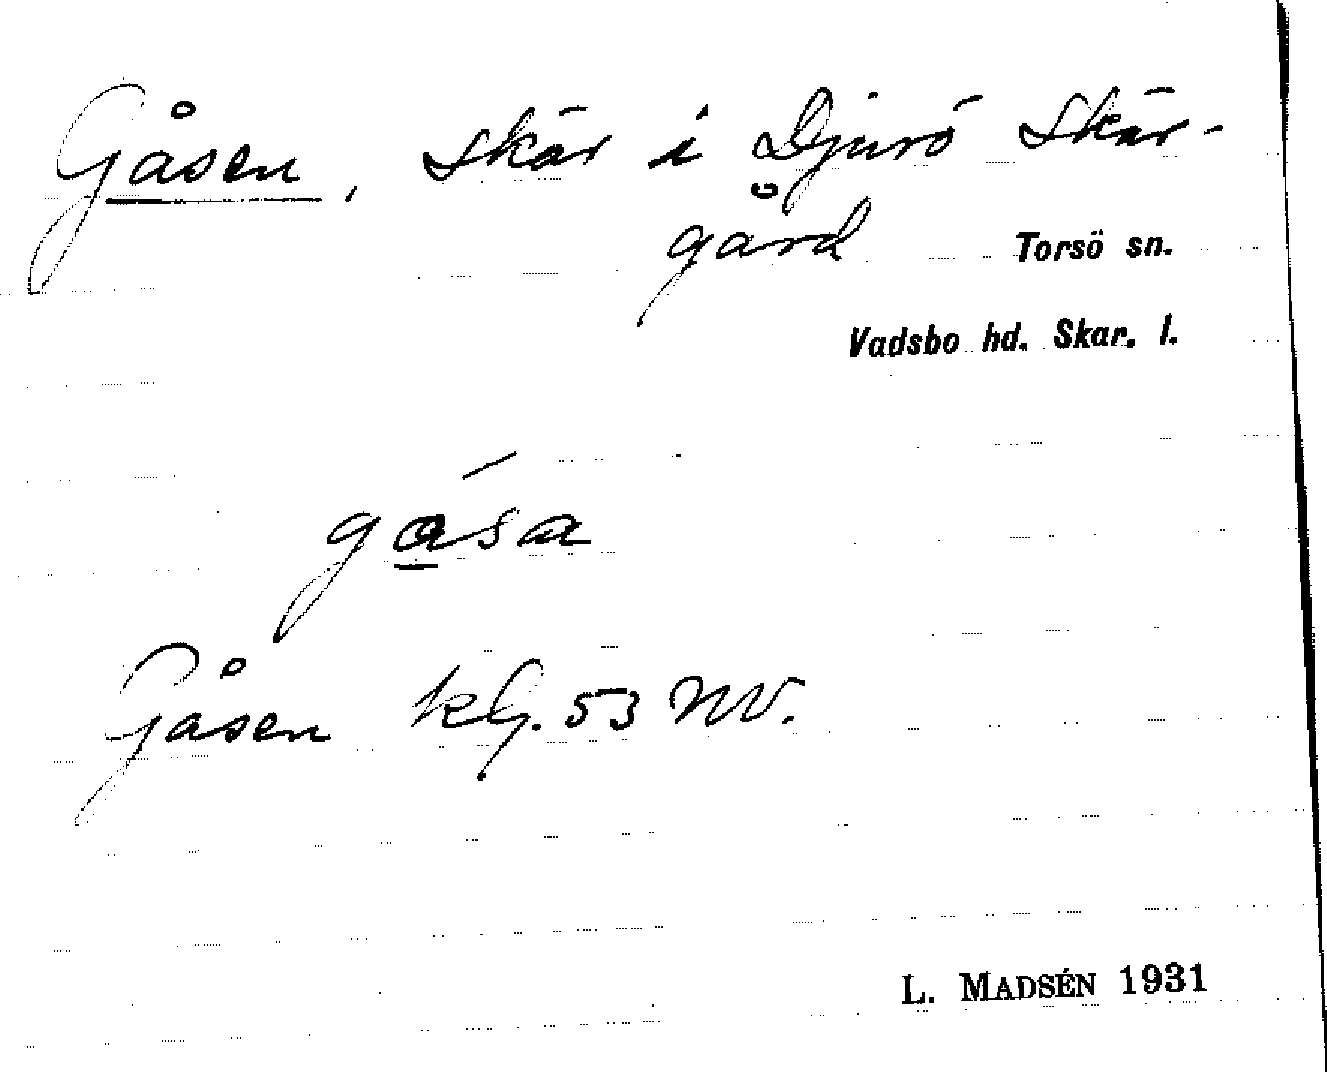 Gåsen, skär i Djurö Skär-
gård
Torsö sn.
Vadsbo hd. Skar. l.
gása
Gåsen kG. 53 NV.
L. MADSÉN 1931